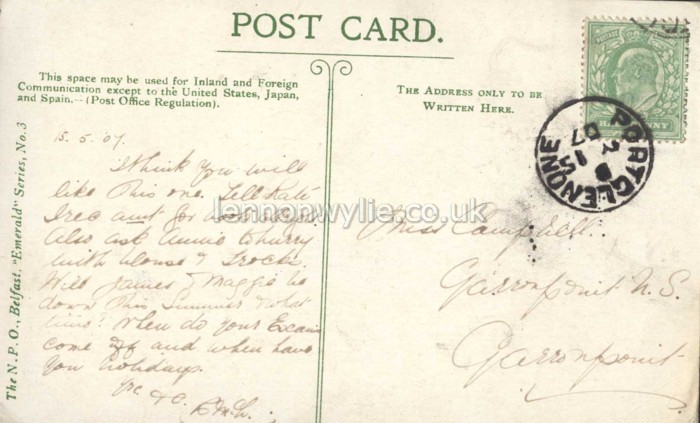 POST CARD.
This space may be used for Inland and Foreign
Communication except to the United States, Japan,
and Spain.—(Post Office Regulation).
THE ADDRESS ONLY TO BE
WRITTEN HERE.
The N.P.O., Belfast. "Emerald" Series, No. 3
PORTGLENONE
15
07
15.5.'07.
I think you will
like this one. Tell Kate
I rec
Also ask Annie to hurry
with blouse & frock.
Will James & Maggie be
down this Summer & what
time? When do your Exams
come off and when have
you holidays.
Miss Campbell.
Garronpoint N.S.
Garronpoint
lennonwylie.co.uk